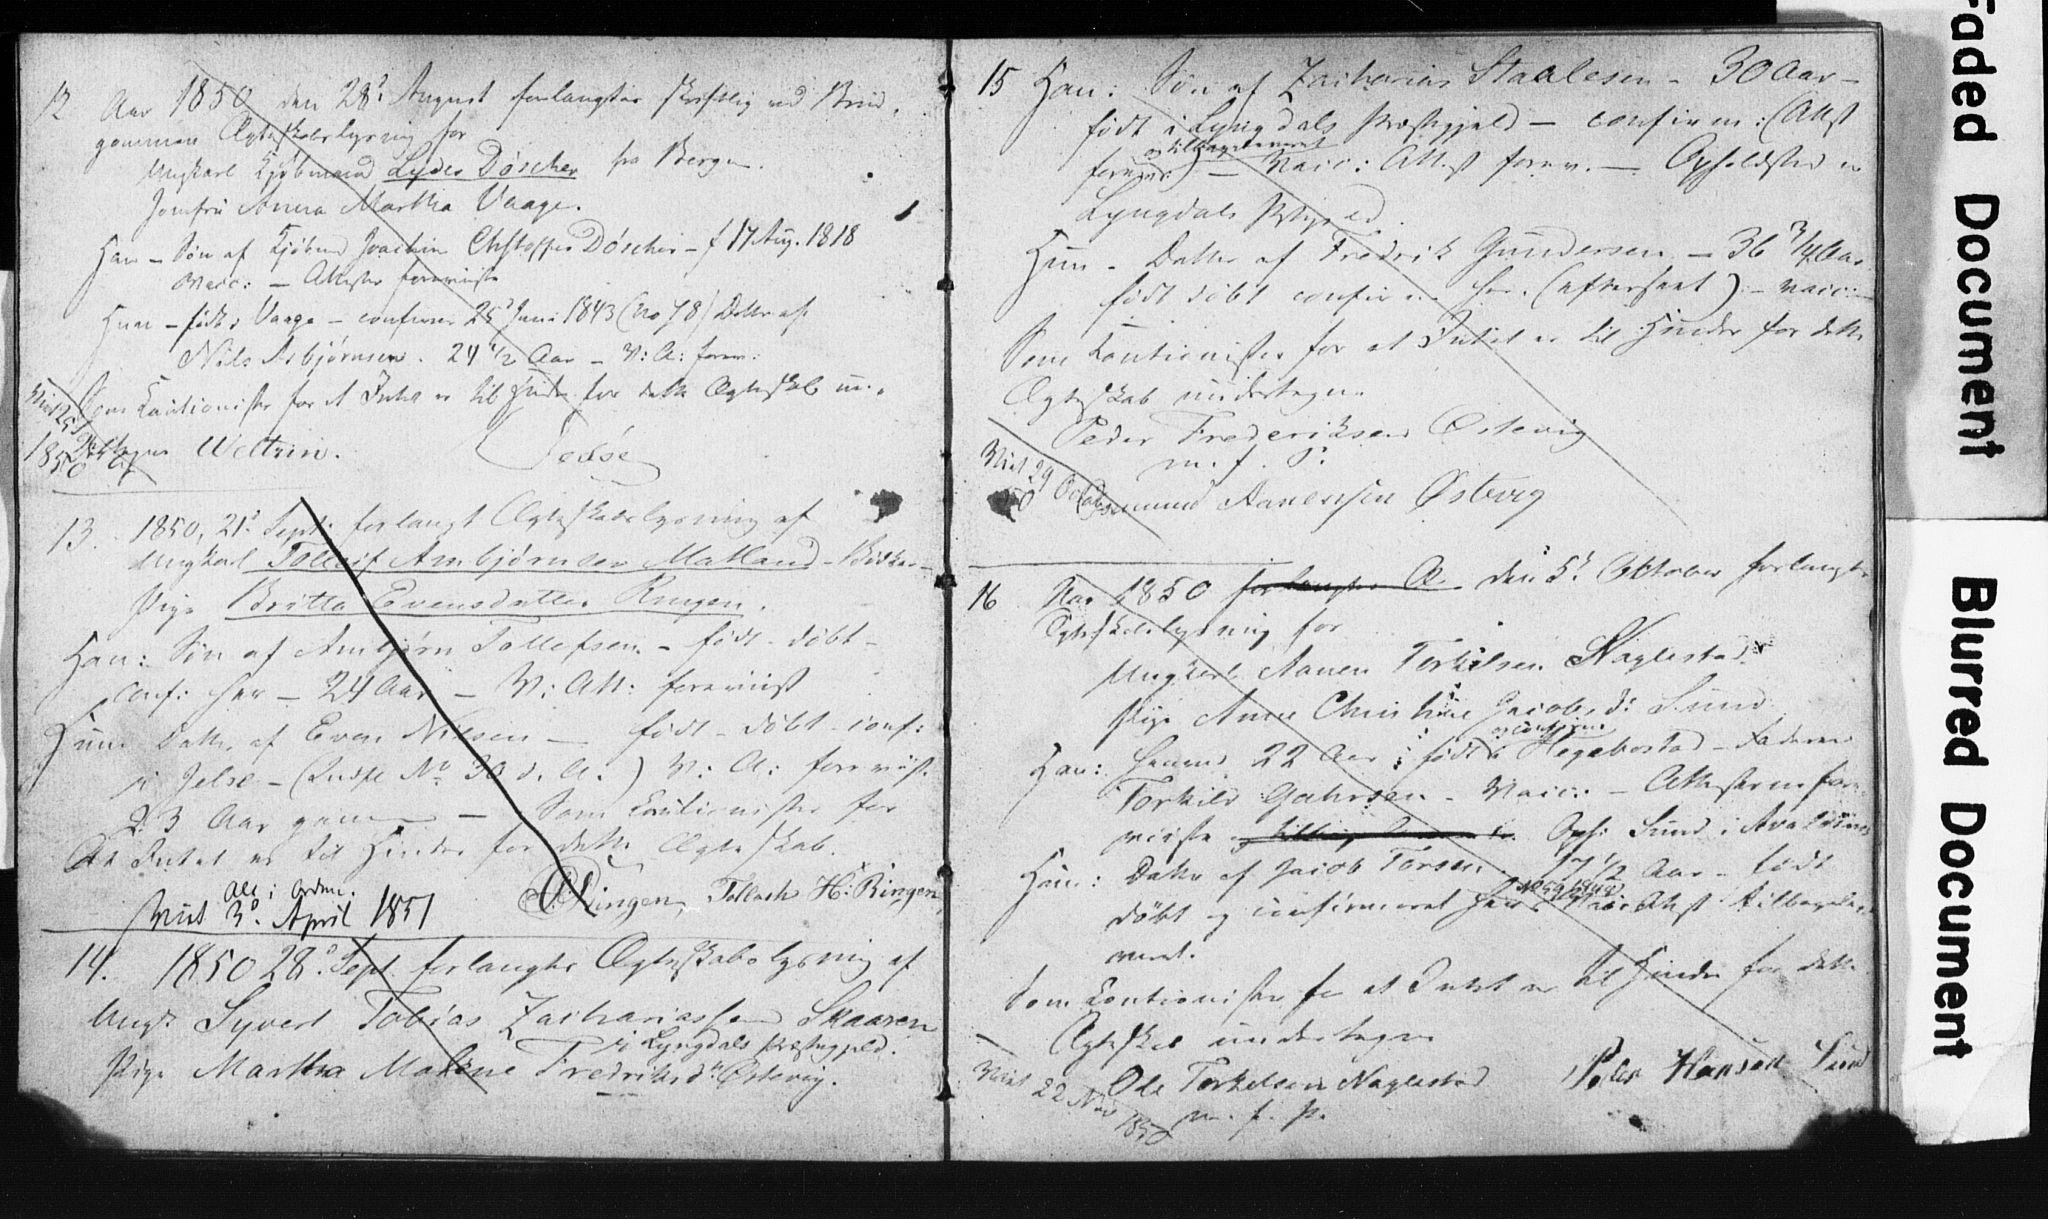 12 Aar 1850 den 28? August forlangtes skriftlig ved Brud-
gommen Ægteskabslysning for
Ungkarl Kjøbmand Lyder Döscher fra Bergen.
Jomfru Anna Martha Vaage.
Han – Søn af Kjøbmd Joachim Chrstoffer Döscher – f 17 Aug. 1818
vacc: – Attester foreviiste
Hun – født i Vaage – confirmr 25? Juni 1843 (No 78) Datter af
Nils Asbjørnsen. 24 1/2 Aar – V: A: forev:
Som Kautionister for at Intet er til Hinder for dette Ægteskab un-
Viet 25
1850
Weltzin.
13. 1850, 21? Sept: forlangt Ægteskabslysning af
Ungkarl Tolleif Ambjørnsen Matland – Bødker –
Pige Britta Evensdatter Ringen.
Han: Søn af Ambjørn Tollefsen – født – døbt –
conf: her – 24 Aar – V: Att: foreviist
Hun Datter af Even Nilsen – født – døbt – conf:
i Jelse – (No 30 d. A.) V: A: foreviist
23 Aar gammel – Som Cautionister for
At Intet er til Hinder for dette Ægteskab.
Alt i Orden.
Viet 3? April 1851
Ringen, Tollach H: Ringen
14. 1850 28? Sept. forlangtes Ægteskabslysning af
Ungk Syvert Tobias Zachariassen Skaaren
i Lyngdals Præstegjeld.
Pige Martha Malene Fredriksdr Østevig.
15 Han: Søn af Zacharias Staalesen – 30 Aar –
født i Lyngdals Præstegjeld – confirm: (Attst
og tilbageleveret
forev:) – Vacc: Attst forev. – Opholdsted er
Lyngdals Pstgjeld.
Hun – Datter af Fredrik Gundersen – 36 3/4 Aar
født døbt confirm her. (efterseet) – vacc:
Som Kautionister for at Intet er til Hinder for dette
Ægteskab undertegne
Peder Frederiksen Østevig
m. f. P.
Viet 29 Octob
50
Aanensen Østevig
16 Aar 1850 den 5? Oktober forlangtes
Ægteskabslysning for
Ungkarl Aanen Torkilsen Naglestad
Pige Anne Christine Jacobsd: Sund
og confirm
Han: 22 Aar : født i Hegebostad – Faderen
Torkild – Vacc: – Attesterne fore-
viiste Oph: Sund i
Hun: Datter af Jacob Torsen. 17 1/2 Aar – født
døbt og confirmeret her Vacc Attst tilbagele-
veret.
Som Kautionister for at Intet er til Hinder for dette
Ægteskab undertegne
Viet 22 Nov
1850
Ole Torkelsen Naglestad
m. f. P.
Peder Hansen Sund
Faded Document
Blurred Document